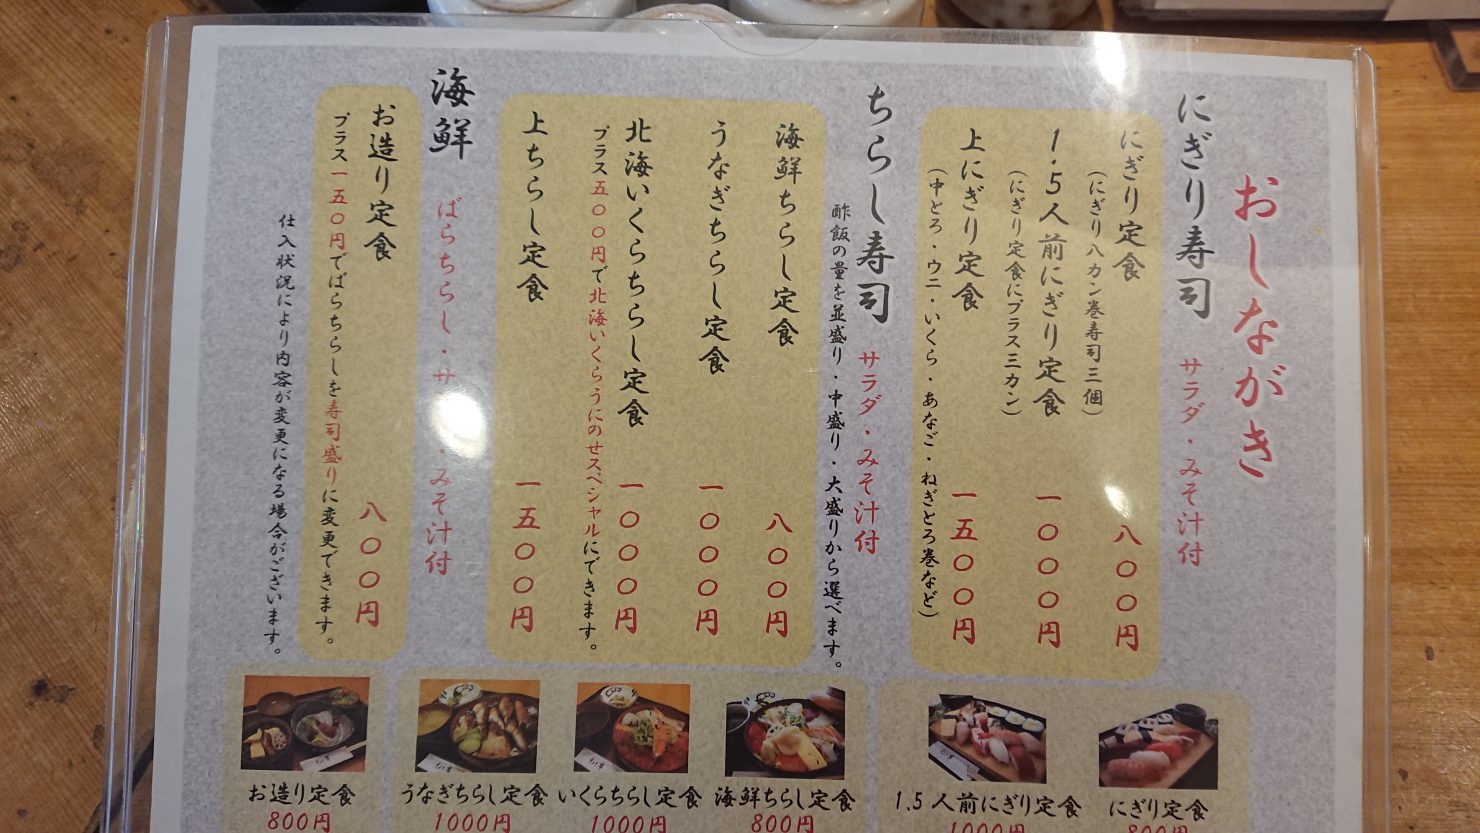 おしながき
にぎり寿司 サラダ・みそ汁付
にぎり定食 八〇〇円
(にぎり八カン巻寿司三個)
1.5人前にぎり定食 一〇〇〇円
(にぎり定食にプラス三カン)
上にぎり定食 一五〇〇円
(中とろ・ウニ・いくら・あなご・ねぎとろ巻など)
ちらし寿司 サラダ・みそ汁付
酢飯の量を並盛り・中盛り・大盛りから選べます。
海鮮ちらし定食 八〇〇円
うなぎちらし定食 一〇〇〇円
北海いくらちらし定食 一〇〇〇円
プラス五〇〇円で北海いくらうにのせスペシャルにできます。
上ちらし定食 一五〇〇円
海鮮 ばらちらし・サ・みそ汁付
お造り定食 八〇〇円
プラス一五〇円でばらちらしを寿司盛りに変更できます。
仕入状況により内容が変更になる場合がございます。
お造り定食
800円
うなぎちらし定食
1000円
いくらちらし定食
1000円
海鮮ちらし定食
800円
1.5人前にぎり定食
1000円
にぎり定食
800円